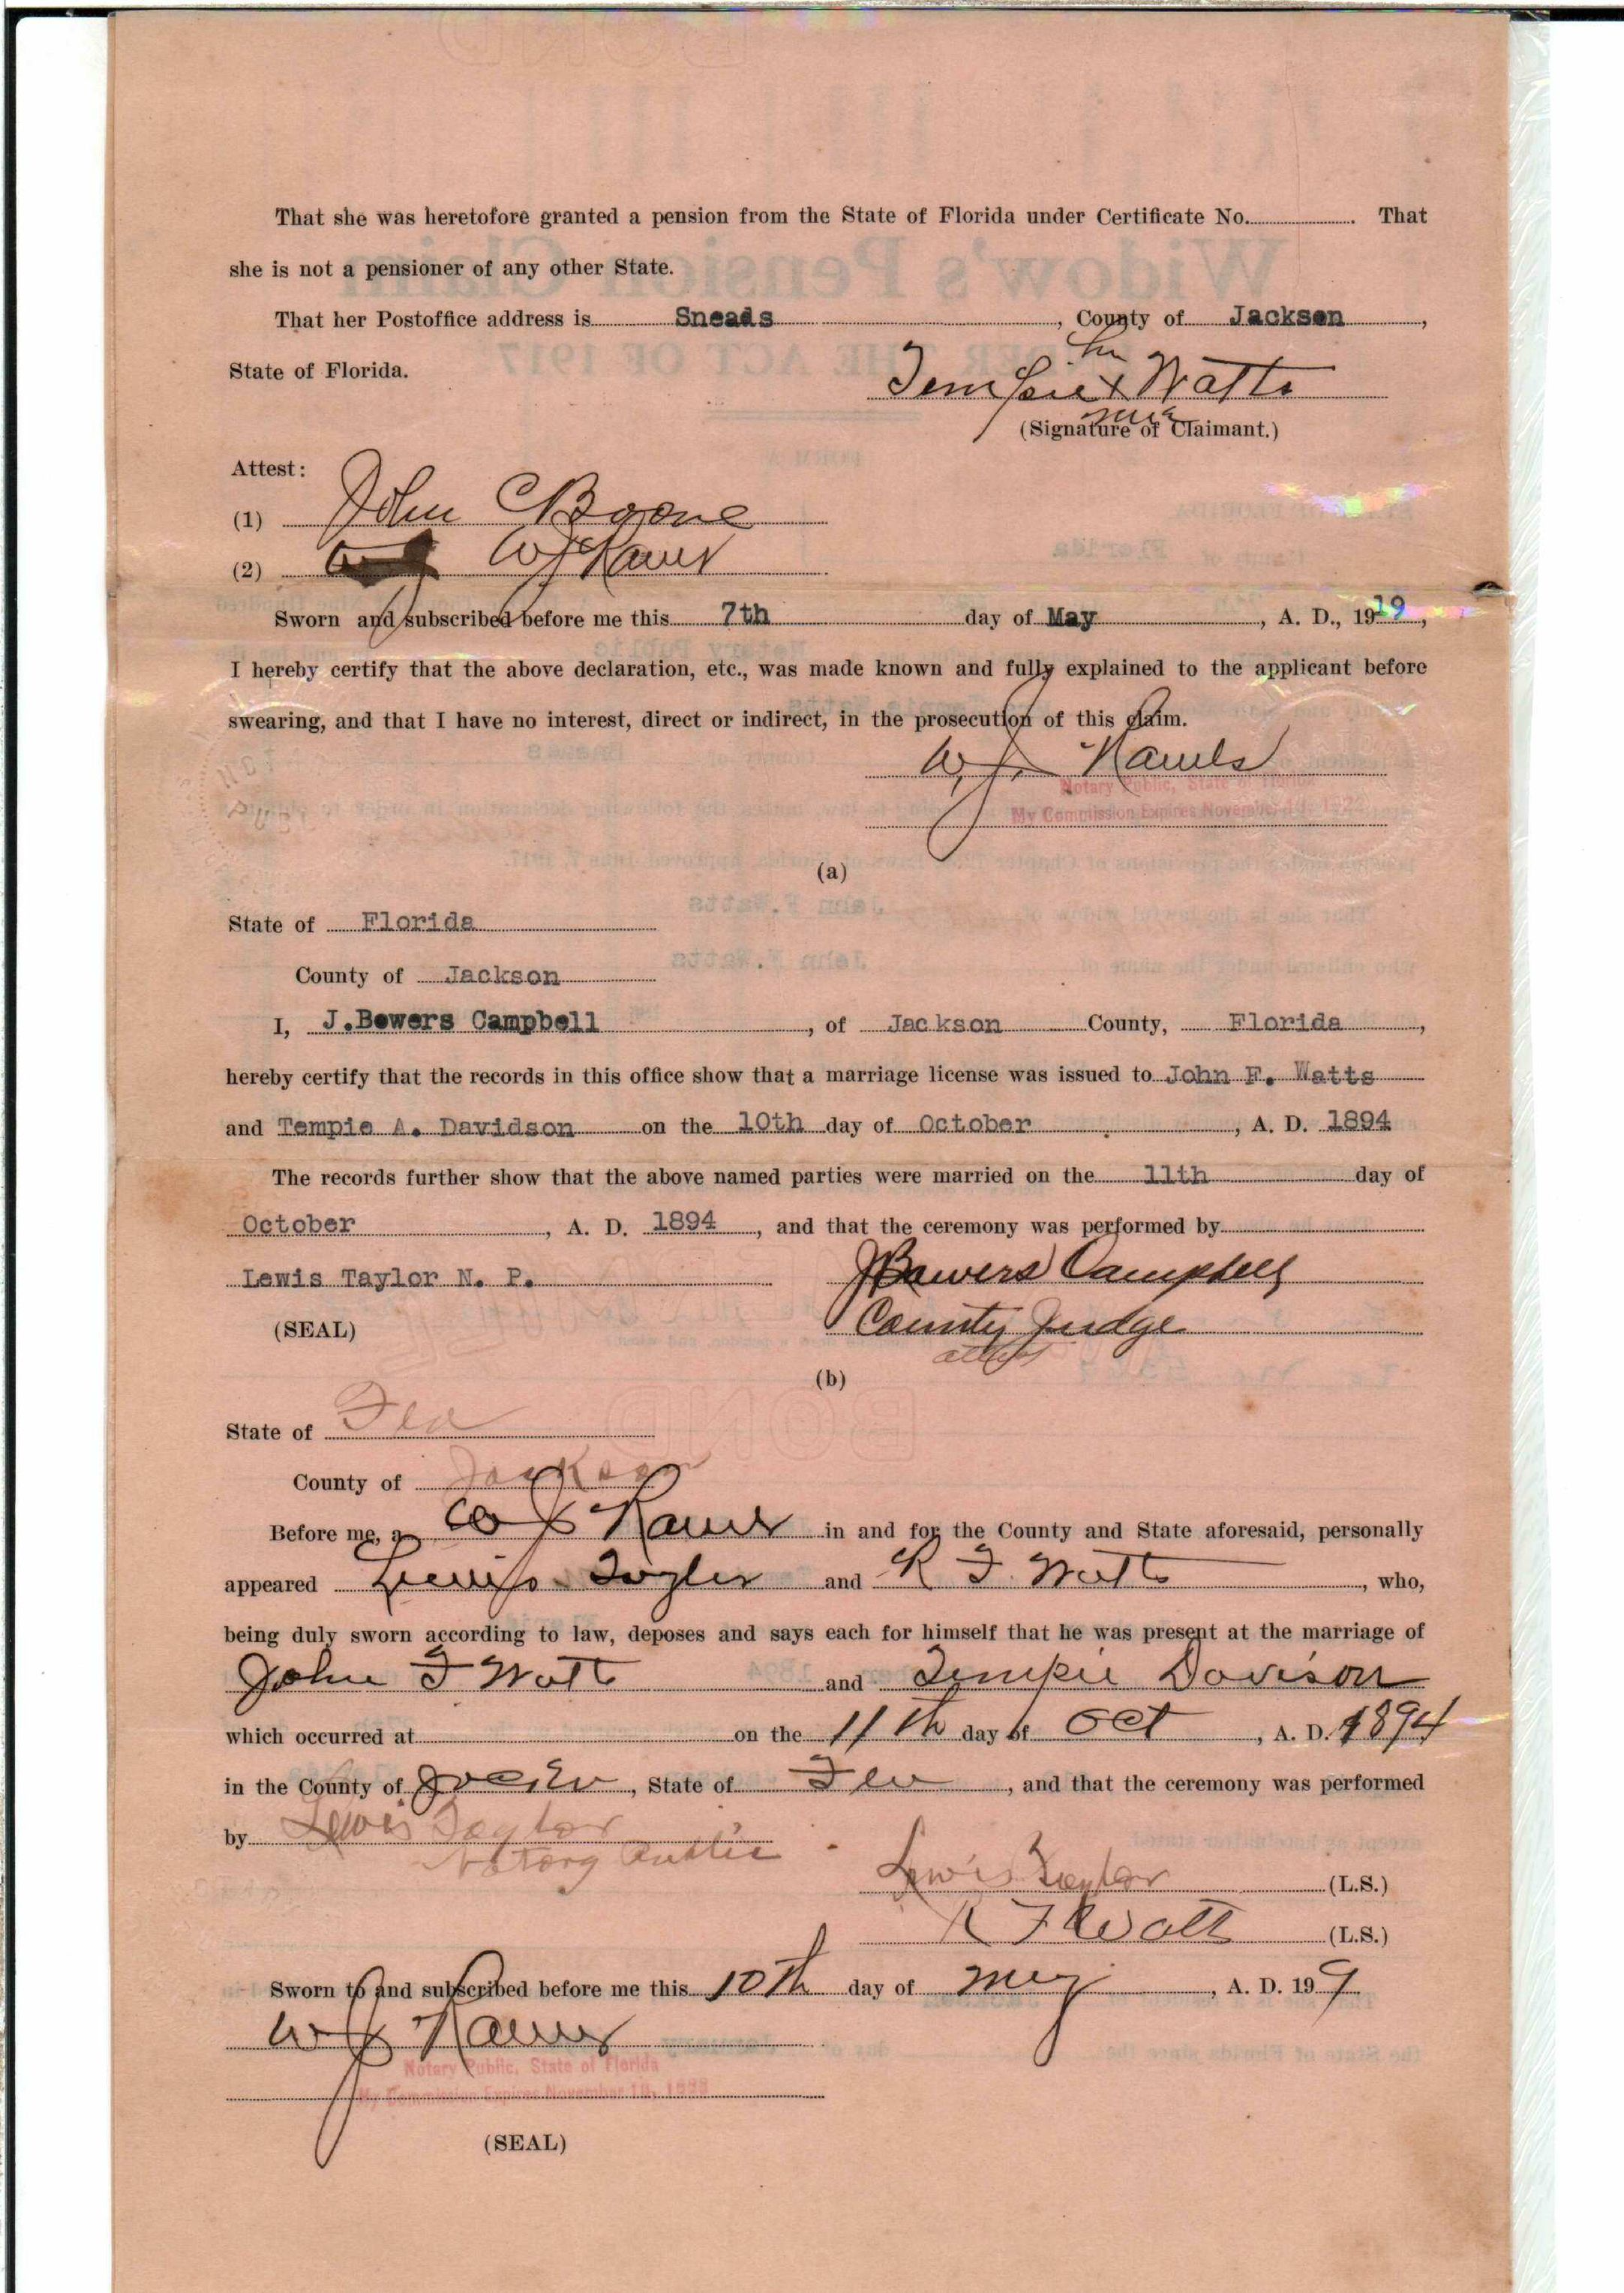 That she was heretofore granted a pension from the State of Florida under Certificate No. That
she is not a pensioner of any other State.
That her Postoffice address is Sneads, County of Jackson,
State of Florida.
her
Tempie x Watts
mark
(Signature of Claimant.)
Attest:
(1) John C Boone
(2) W J Rawls
Sworn and subscribed before me this 7th day of May, A. D., 1919,
I hereby certify that the above declaration, etc., was made known and fully explained to the applicant before
swearing, and that I have no interest, direct or indirect, in the prosecution of this claim.
W. J. Rawls
Notary Public, State of Florida
My Commission Expires November 1922
(a)
State of Florida
County of Jackson
I, J.Bowers Campbell, of Jackson County, Florida,
hereby certify that the records in this office show that a marriage license was issued to John F. Watts
and Tempie A. Davidson on the 10th day of October, A. D. 1894
The records further show that the above named parties were married on the 11th day of
October, A. D. 1894, and that the ceremony was performed by
Lewis Taylor N. P. J Bowers Campbell
(SEAL) County Judge
(b)
State of Fla
County of Jackson
Before me, a W J Rawls in and for the County and State aforesaid, personally
appeared Lewis Taylor and R F Watts, who,
being duly sworn according to law, deposes and says each for himself that he was present at the marriage of
John F Watts and Tempie Davison
which occurred at on the 11th day of Oct, A. D. 1894
in the County of, State of Fla, and that the ceremony was performed
by Lewis Taylor
Notary Public
Lewis Taylor (L.S.)
R F Watts (L.S.)
Sworn to and subscribed before me this 10th day of May, A. D. 199
W J Rawls
Notary Public, State of Florida
My Commission Expires November 1922
(SEAL)